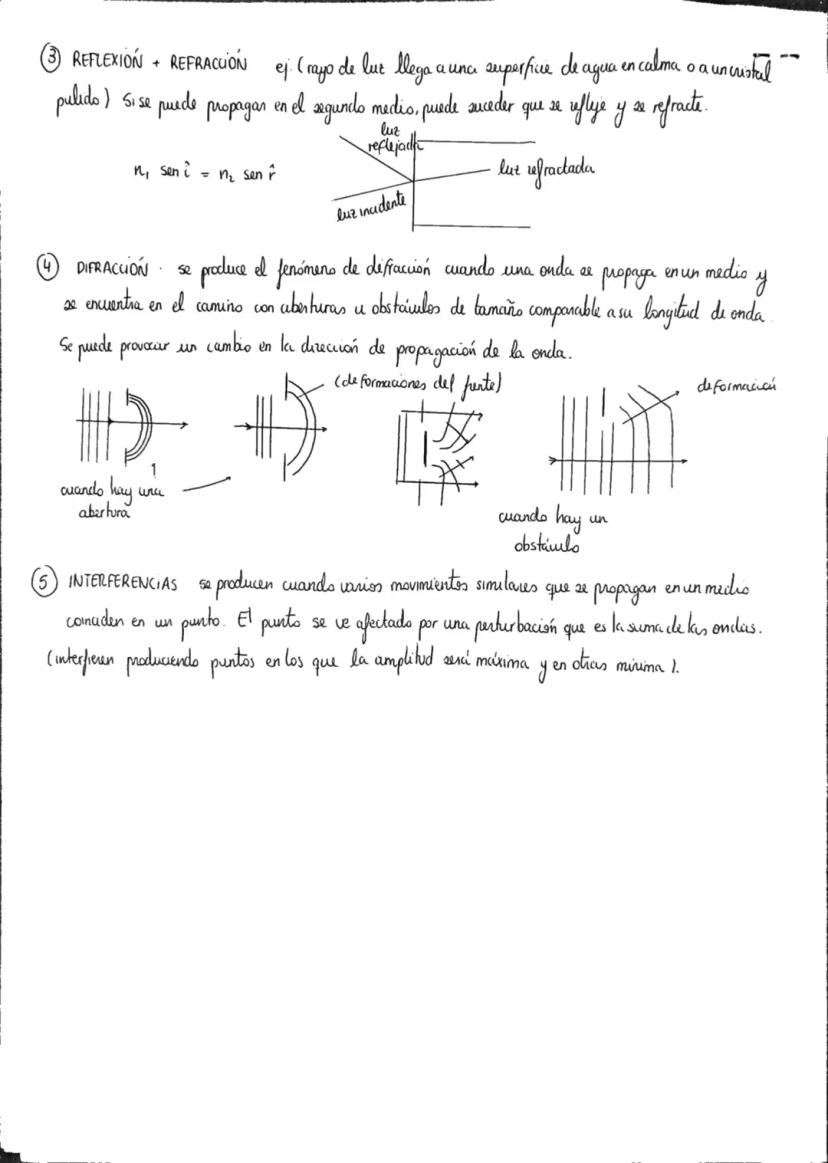 ③ REFLEXIÓN + REFRACCIÓN ej. (rayo de luz llega a una superficie de agua en calma o a un cristal
pulido) Si se puede propagar en el segundo medio, puede suceder que se refleje y se refracte.
luz
reflejada
n₁ sen î = n₂ sen r̂
luz refractada
luz incidente
④ DIFRACCIÓN. se produce el fenómeno de difracción cuando una onda se propaga en un medio y
se encuentra en el camino con aberturas u obstáculos de tamaño comparable a su longitud de onda.
Se puede provocar un cambio en la dirección de propagación de la onda.
(deformaciones del frente)
deformación
cuando hay una
abertura
cuando hay un
obstáculo
⑤ INTERFERENCIAS se producen cuando varios movimientos similares que se propagan en un medio
coinciden en un punto. El punto se ve afectado por una perturbación que es la suma de las ondas.
(interfieren produciendo puntos en los que la amplitud será máxima y en otras mínima).